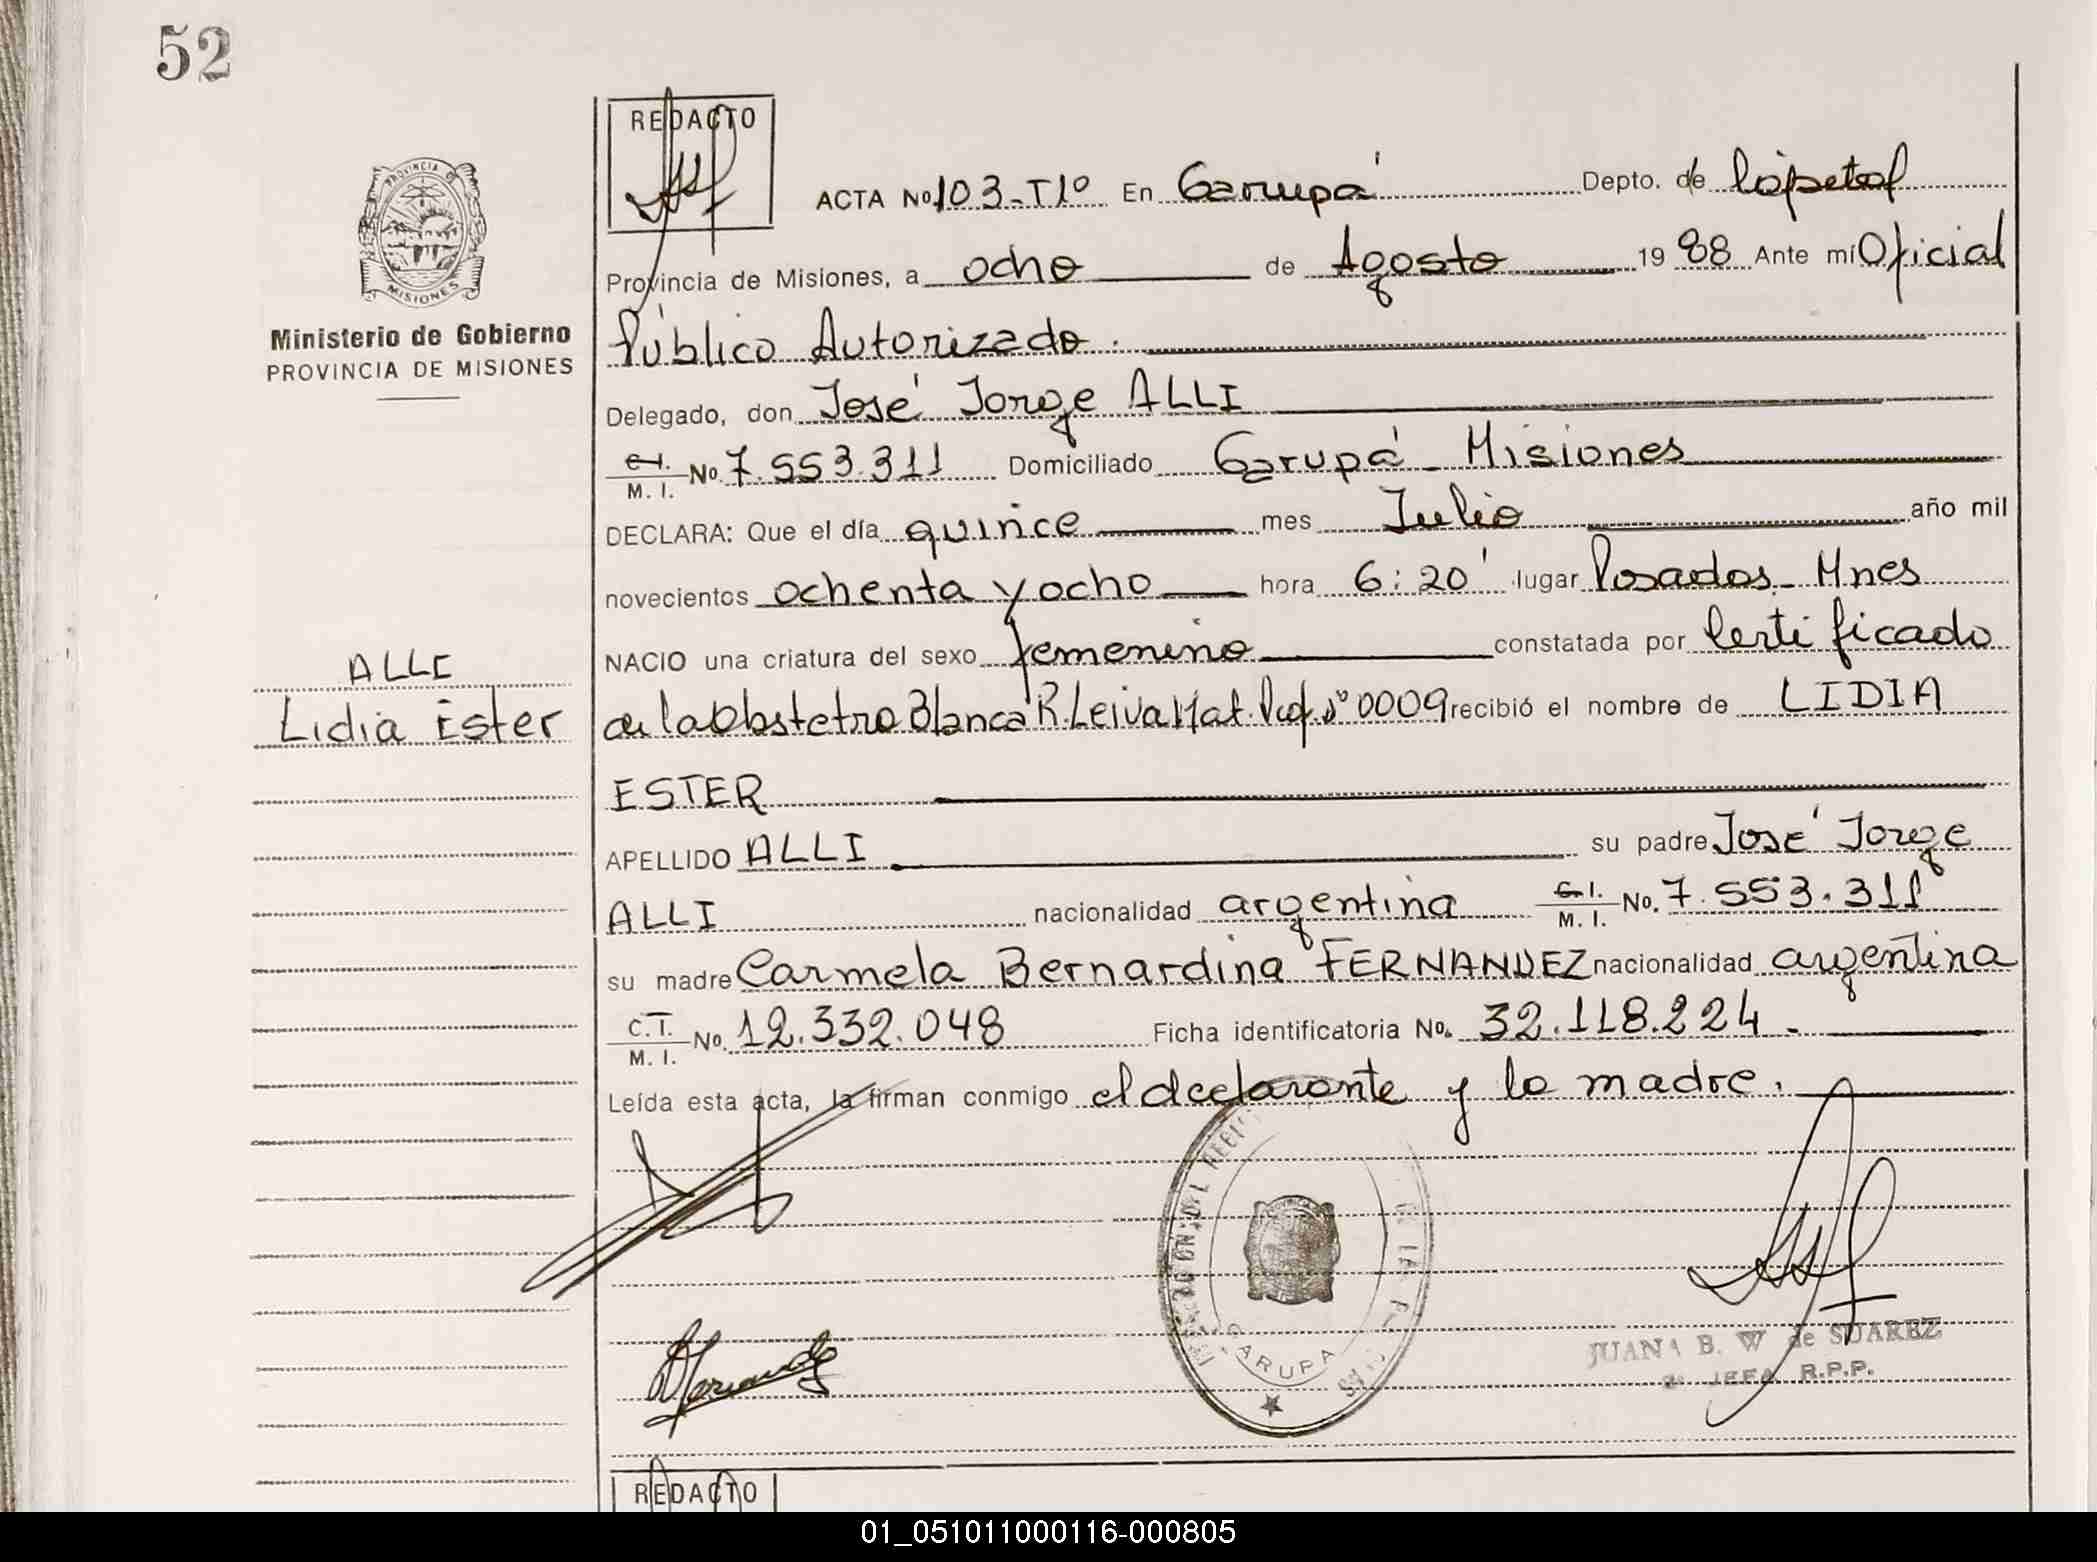 52
REDACTO
PROVINCIA D
MISIONES
Ministerio de Gobierno
PROVINCIA DE MISIONES
ACTA No 103-T1º En Garupá Depto. de Capital
Provincia de Misiones, a ocho de Agosto 1988 Ante mi Oficial
Público Autorizado.
Delegado, don José Jorge ALLI
C.I. M. I. No. 7.553.311 Domiciliado Garupá - Misiones
DECLARA: Que el día quince mes Julio año mil
novecientos ochenta y ocho hora 6:20' lugar Posadas - Mnes
NACIO una criatura del sexo femenino constatada por Certificado
ALLI
Lidia Ester
de la Obstetra Blanca R. Leiva Mat. Prof. Nº 0009 recibió el nombre de LIDIA
ESTER
APELLIDO ALLI su padre José Jorge
ALLI nacionalidad argentina C.I. M. I. No. 7.553.311
su madre Carmela Bernardina FERNANDEZ nacionalidad argentina
C.I. M. I. No. 12.332.048 Ficha identificatoria No. 32.118.224.-
Leída esta acta, la firman conmigo el declarante y la madre.
GARUPA
JUANA B. W de SUAREZ
2ª JEFA R.P.P.
REDACTO
01_051011000116-000805